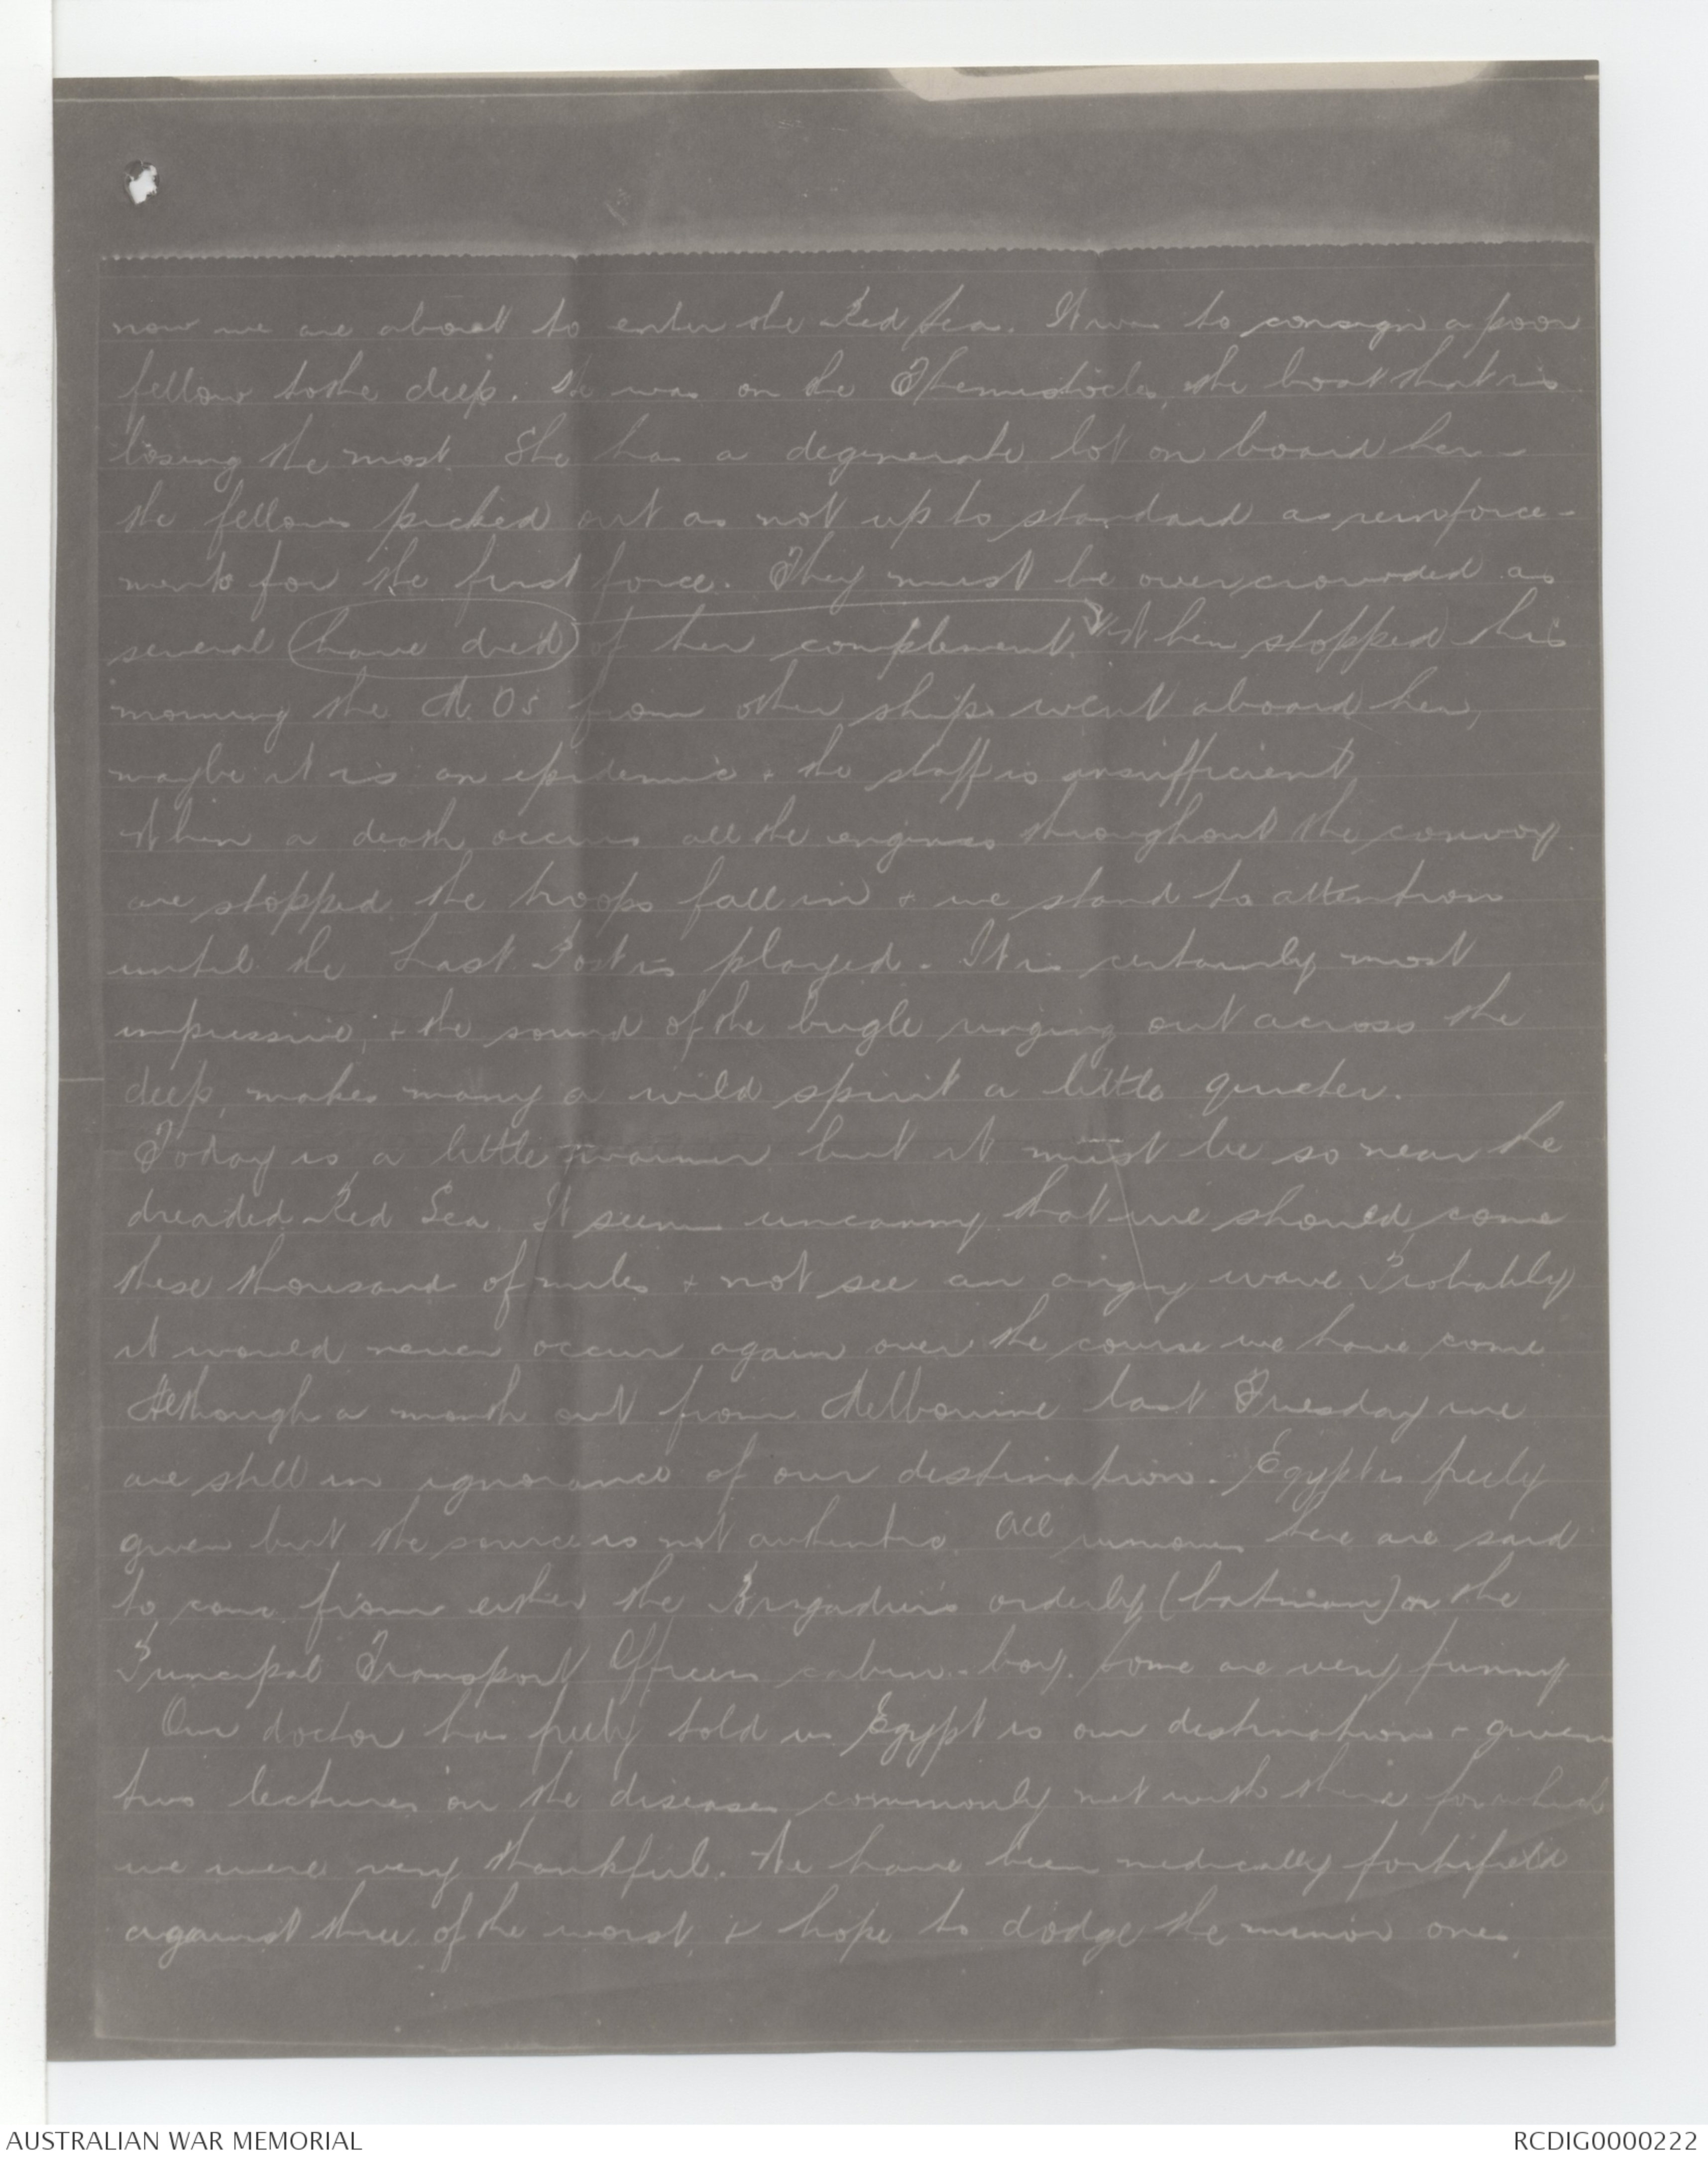 now we are about to enter the Red Sea. It was to consign a poor
fellow to the deep. He was on the Themistocles, the boat that is
losing the most. She has a degenerate lot on board her -
the fellows picked out as not up to standard as reinforce-
ments for the first force. They must be overcrowded as
several (have died) of her complement. When stopped this
morning the M.Os from other ships went aboard her,
maybe it is an epidemic & the staff is insufficient
When a death occurs all the engines throughout the convoy
are stopped, the troops fall in & we stand to attention
until the Last Post is played. It is certainly most
impressive, & the sound of the bugle ringing out across the
deep, makes many a wild spirit a little quieter.
Today is a little warmer but it must be so near the
dreaded Red Sea. It seems uncanny that we should come
these thousand of miles & not see an angry wave Probably
it would never occur again over the course we have come
Although a month out from Melbourne last Tuesday we
are still in ignorance of our destination. Egypt is freely
given but the source is not authentic. All rumours here are said
to come from either the Brigadier's orderly (batman) or the
Principal Transport Officers cabin-boy. Some are very funny
Our doctor has freely told us Egypt is our destination & given
two lectures on the diseases commonly met with there for which
we were very thankful. We have been medically fortified
against three of the worst, & hope to dodge the minor ones.
AUSTRALIAN WAR MEMORIAL
RCDIG0000222